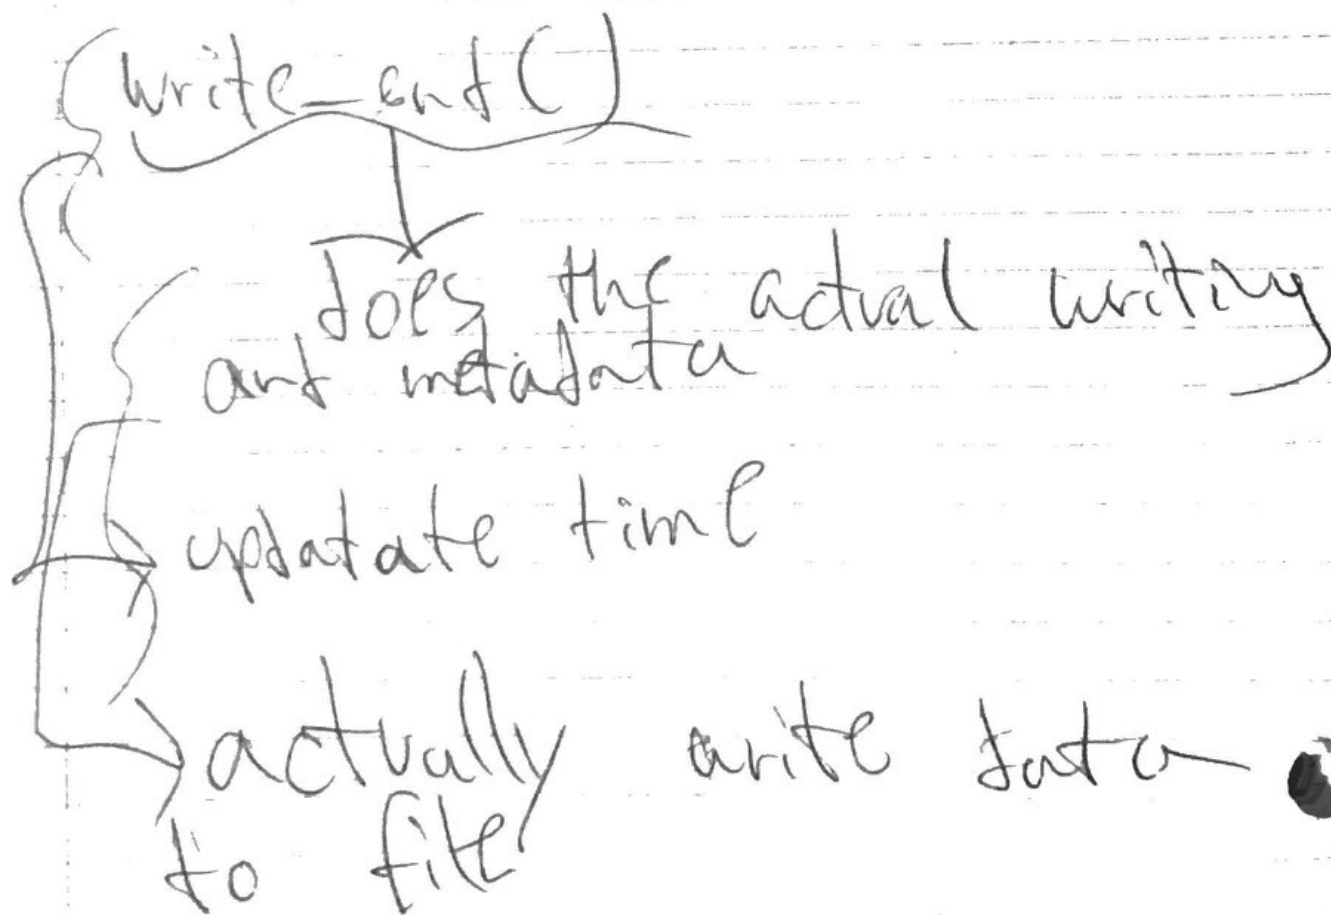 write_end()
does the actual writing
and metadata
updatate time
actually write data
to file